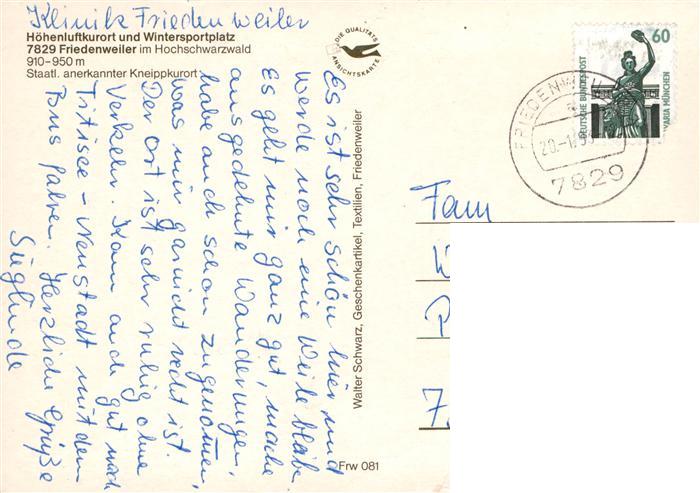 Klinik Friedenweiler
Höhenluftkurort und Wintersportplatz
7829 Friedenweiler im Hochschwarzwald
910–950 m
Staatl. anerkannter Kneippkurort
DIE QUALITÄTS
ANSICHTSKARTE
Es ist sehr schön hier und
werde noch eine Weile bleiben
Es geht mir ganz gut, mache
ausgedehnte Wanderungen,
habe auch schon zugenommen,
was mir garnicht recht ist.
Der Ort ist sehr ruhig ohne
Verkehr. Kann auch gut nach
Titisee – Neustadt mit dem
Bus fahren. Herzliche Grüße
Sieglinde
Walter Schwarz, Geschenkartikel, Textilien, Friedenweiler
Frw 081
60
DEUTSCHE BUNDESPOST
BAVARIA MÜNCHEN
7829
Fam